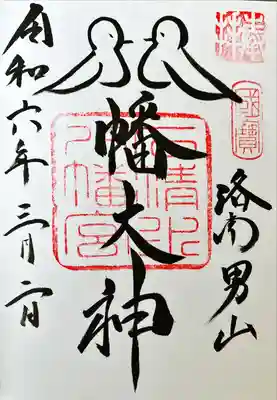 奉拝
國寶
洛南男山
八幡大神
石清水
八幡宮
令和六年三月二日